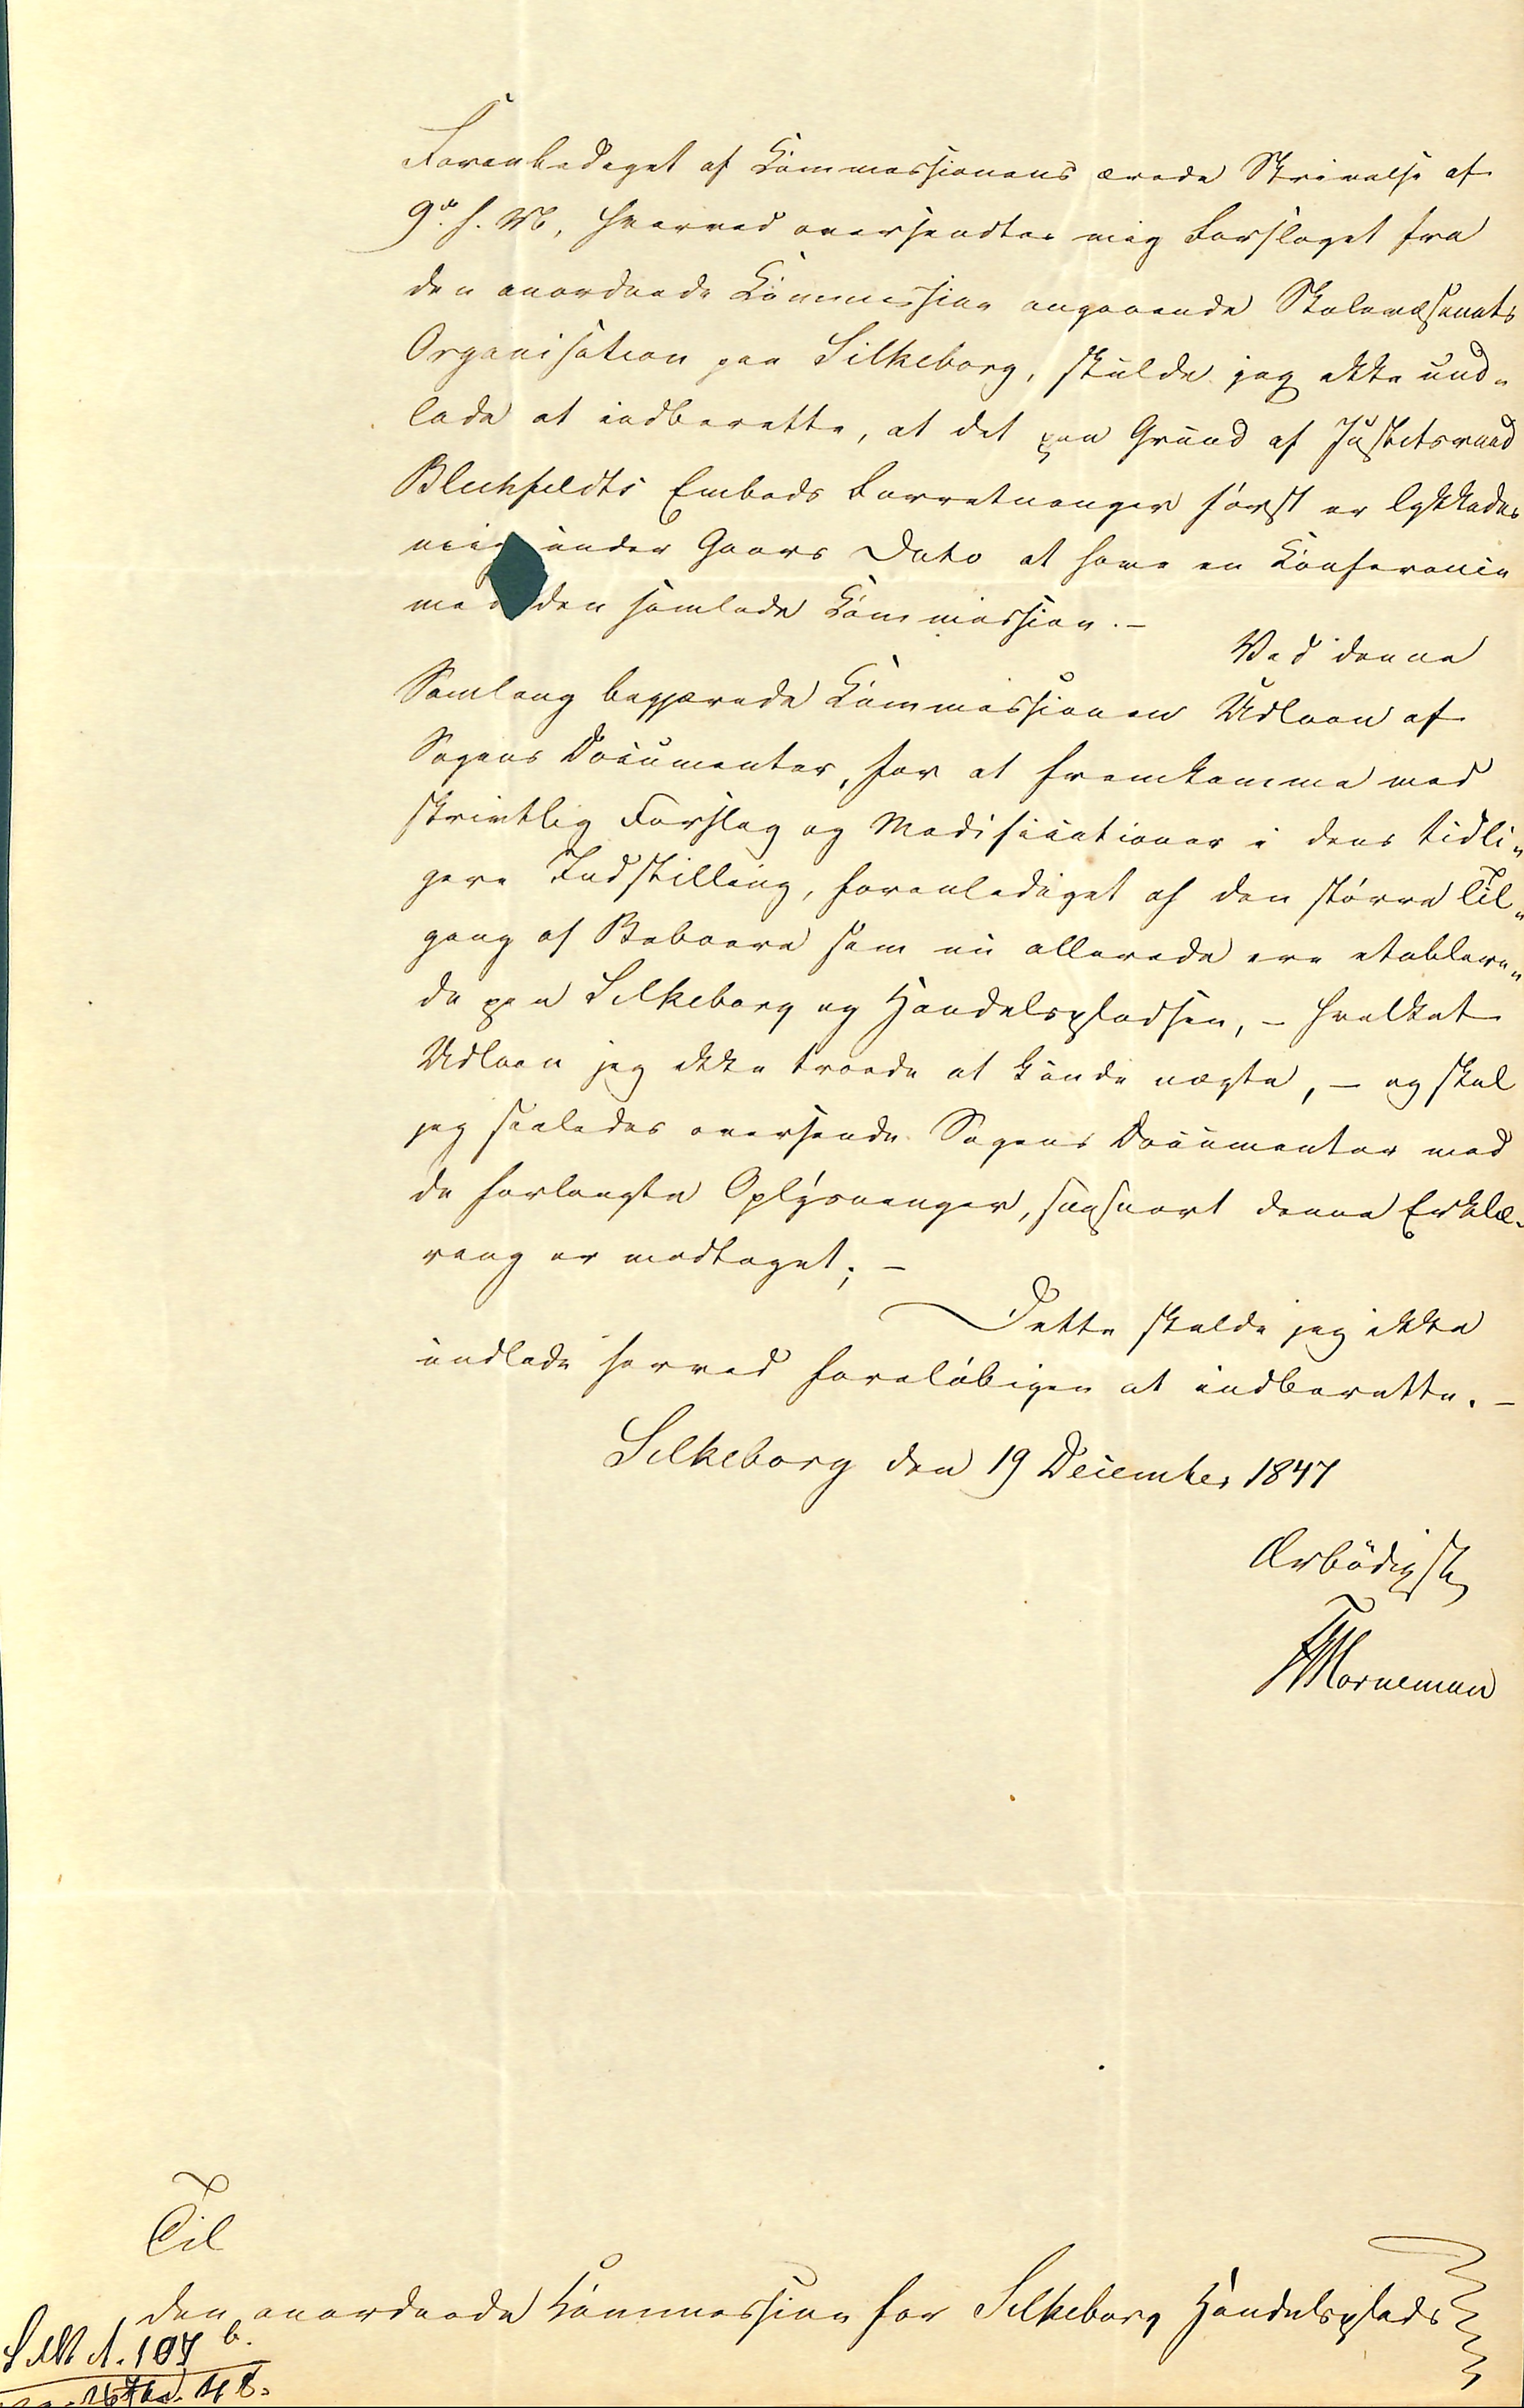 Foranlediget af Kommissionens ærede Skrivelse af
9de h. M, hvorved oversendtes mig Forslaget fra
den anordnede Kommission angaaende Skolevæsenets
Organisation paa Silkeborg, skulde jeg ikke und-
lade at indberette, at det paa Grund af Justitsraad
Blechfeldts Embeds Forretninger først er lykkedes
mig under Gaars Dato at have en Conference
med den samlede Kommission. –
Ved denne
Samling begjærede Kommissionen Udlaan af
Sagens Documenter, for at fremkomme med
skrivtlig Forslag og Modificationer i dens tidli-
gere Indstilling, foranlediget af den større Til-
gang af Beboere som nu allerede ere etablere-
de paa Silkeborg og Handelspladsen, – hvilket
Udlaan jeg ikke troede at kunde nægte, – og skal
jeg saaledes oversende Sagens Documenter med
de forlangte Oplysninger, saasnart denne Erklæ-
ring er modtaget; –
Dette skulde jeg ikke
undlade herved foreløbigen at indberette. –
Silkeborg den 19 December 1847
Ærbødigst
Horneman
Til
den anordnede Kommission for Silkeborg Handelsplads
Silk A. 107 b.
48.